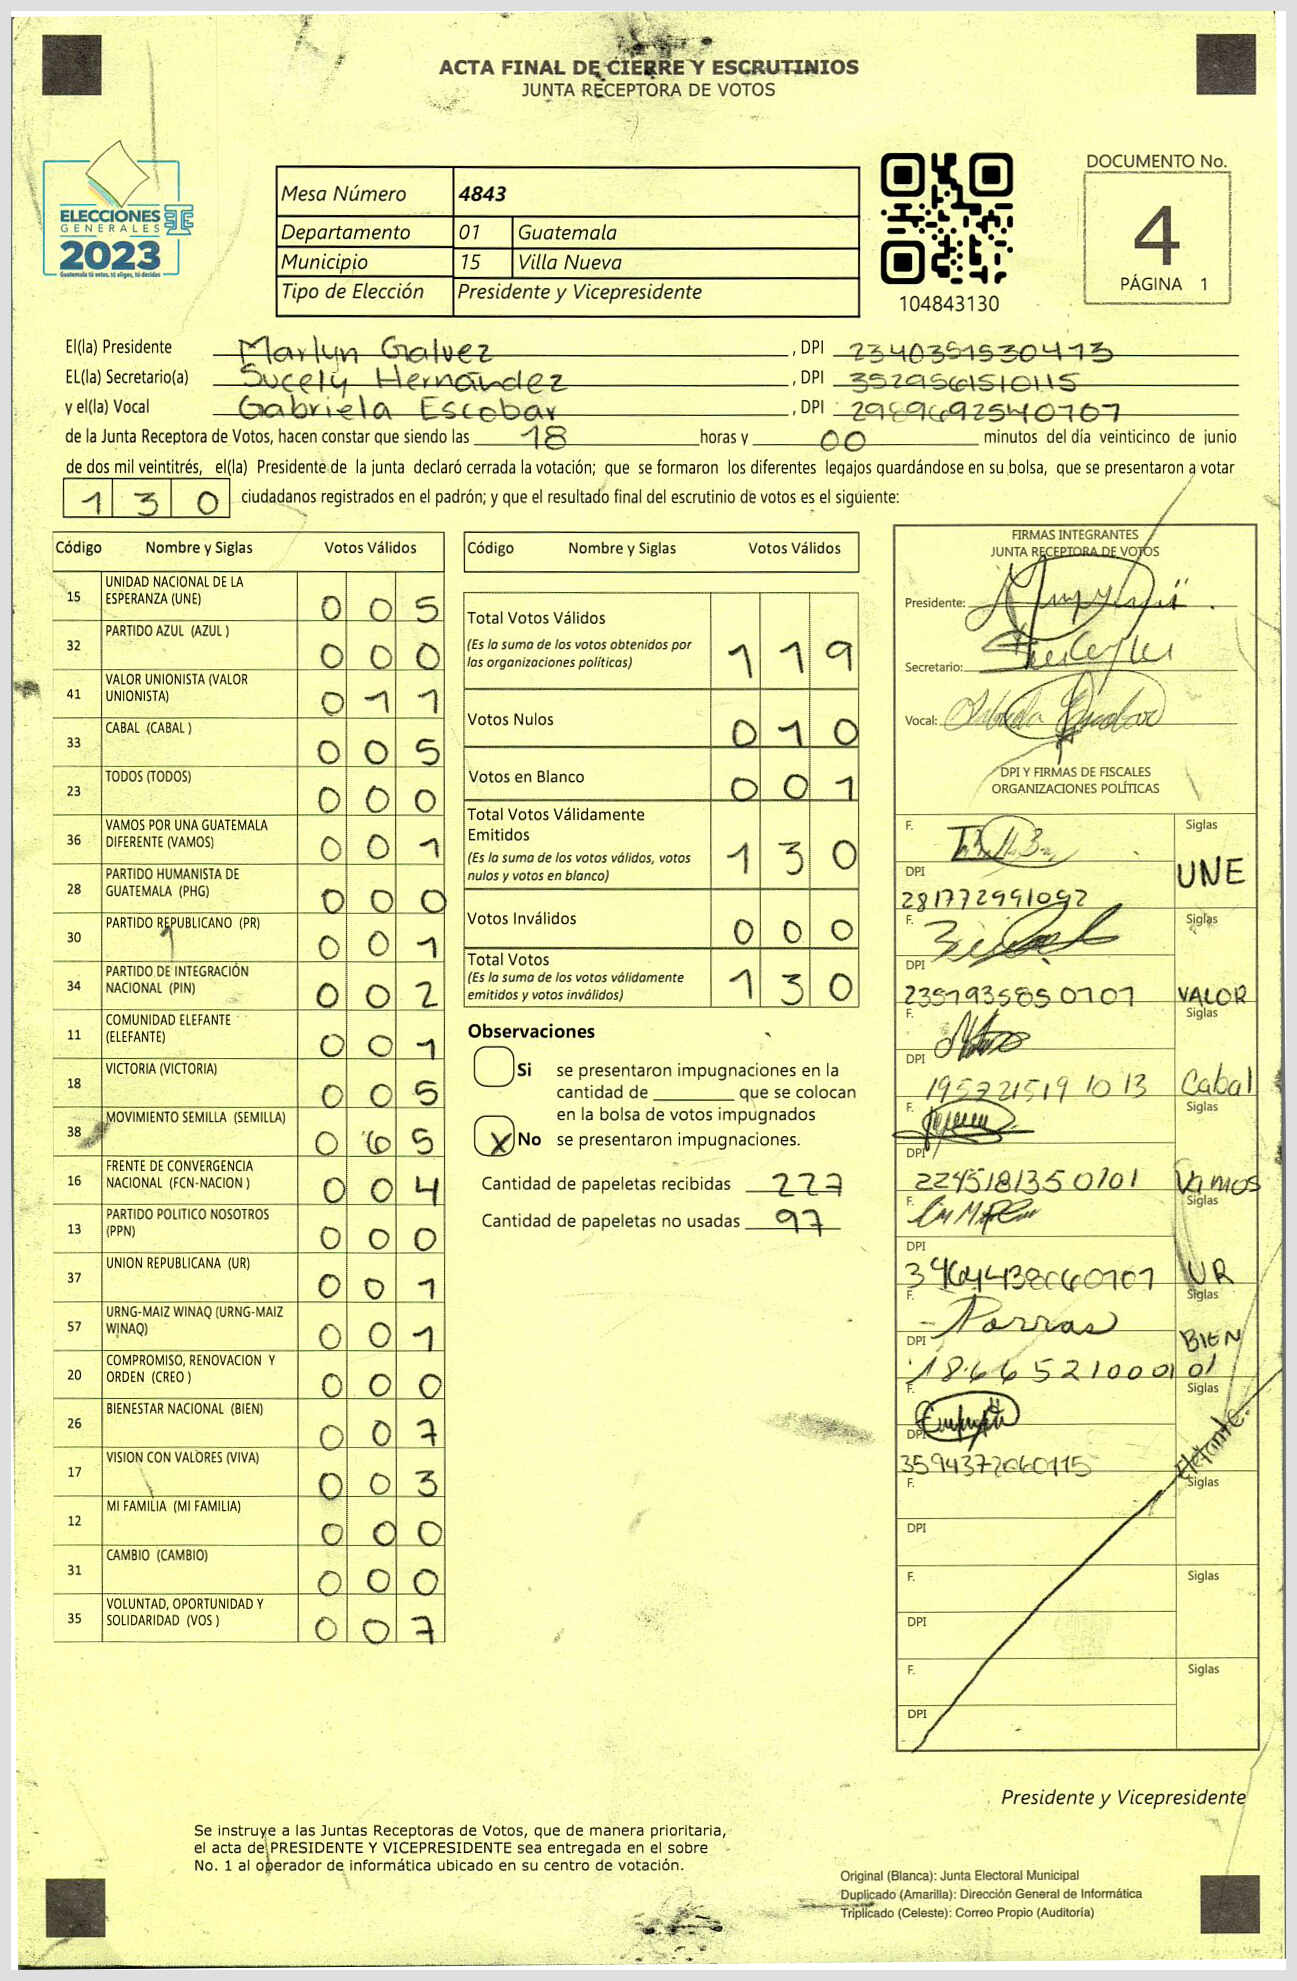 ACTA FINAL DE CIERRE Y ESCRUTINIOS
JUNTA RECEPTORA DE VOTOS
ELECCIONES
GENERALES
2023
Guatemala tú votas, tú eliges, tú decides
Mesa Número 4843
Departamento 01 Guatemala
Municipio 15 Villa Nueva
Tipo de Elección Presidente y Vicepresidente
104843130
DOCUMENTO No.
4
PÁGINA 1
El(la) Presidente Marlyn Galvez , DPI 2340351530413
EL(la) Secretario(a) Sucely Hernández , DPI 3529561510115
y el(la) Vocal Gabriela Escobar , DPI 2989692540707
de la Junta Receptora de Votos, hacen constar que siendo las 18 horas y 00 minutos del día veinticinco de junio
de dos mil veintitrés, el(la) Presidente de la junta declaró cerrada la votación; que se formaron los diferentes legajos guardándose en su bolsa, que se presentaron a votar
130 ciudadanos registrados en el padrón; y que el resultado final del escrutinio de votos es el siguiente:
Código Nombre y Siglas Votos Válidos
15 UNIDAD NACIONAL DE LA ESPERANZA (UNE) 0 0 5
32 PARTIDO AZUL (AZUL ) 0 0 0
41 VALOR UNIONISTA (VALOR UNIONISTA) 0 1 1
33 CABAL (CABAL ) 0 0 5
23 TODOS (TODOS) 0 0 0
36 VAMOS POR UNA GUATEMALA DIFERENTE (VAMOS) 0 0 1
28 PARTIDO HUMANISTA DE GUATEMALA (PHG) 0 0 0
30 PARTIDO REPUBLICANO (PR) 0 0 1
34 PARTIDO DE INTEGRACIÓN NACIONAL (PIN) 0 0 2
11 COMUNIDAD ELEFANTE (ELEFANTE) 0 0 1
18 VICTORIA (VICTORIA) 0 0 5
38 MOVIMIENTO SEMILLA (SEMILLA) 0 6 5
16 FRENTE DE CONVERGENCIA NACIONAL (FCN-NACION ) 0 0 4
13 PARTIDO POLITICO NOSOTROS (PPN) 0 0 0
37 UNION REPUBLICANA (UR) 0 0 1
57 URNG-MAIZ WINAQ (URNG-MAIZ WINAQ) 0 0 1
20 COMPROMISO, RENOVACION Y ORDEN (CREO ) 0 0 0
26 BIENESTAR NACIONAL (BIEN) 0 0 7
17 VISION CON VALORES (VIVA) 0 0 3
12 MI FAMILIA (MI FAMILIA) 0 0 0
31 CAMBIO (CAMBIO) 0 0 0
35 VOLUNTAD, OPORTUNIDAD Y SOLIDARIDAD (VOS ) 0 0 7
Código Nombre y Siglas Votos Válidos
Total Votos Válidos 1 1 9
(Es la suma de los votos obtenidos por
las organizaciones políticas)
Votos Nulos 0 1 0
Votos en Blanco 0 0 1
Total Votos Válidamente
Emitidos 1 3 0
(Es la suma de los votos válidos, votos
nulos y votos en blanco)
Votos Inválidos 0 0 0
Total Votos 1 3 0
(Es la suma de los votos válidamente
emitidos y votos inválidos)
Observaciones
Si se presentaron impugnaciones en la
cantidad de ________ que se colocan
en la bolsa de votos impugnados
X No se presentaron impugnaciones.
Cantidad de papeletas recibidas 227
Cantidad de papeletas no usadas 97
FIRMAS INTEGRANTES
JUNTA RECEPTORA DE VOTOS
Presidente:
Secretario:
Vocal:
DPI Y FIRMAS DE FISCALES
ORGANIZACIONES POLÍTICAS
F. Siglas
UNE
DPI
281772991092
F. Siglas
DPI
2357935850707 VALOR
F. Siglas
DPI
1957215191013 Cabal
F. Siglas
DPI
2245181350101 Vamos
F. Siglas
DPI
3464438060707 UR
F. Porras Siglas
DPI BIEN
1866521000101
F. Siglas
DPI
3594372060115 Elefante.
F. Siglas
DPI
F. Siglas
DPI
F. Siglas
DPI
Presidente y Vicepresidente
Se instruye a las Juntas Receptoras de Votos, que de manera prioritaria,
el acta de PRESIDENTE Y VICEPRESIDENTE sea entregada en el sobre
No. 1 al operador de informática ubicado en su centro de votación.
Original (Blanca): Junta Electoral Municipal
Duplicado (Amarilla): Dirección General de Informática
Triplicado (Celeste): Correo Propio (Auditoría)